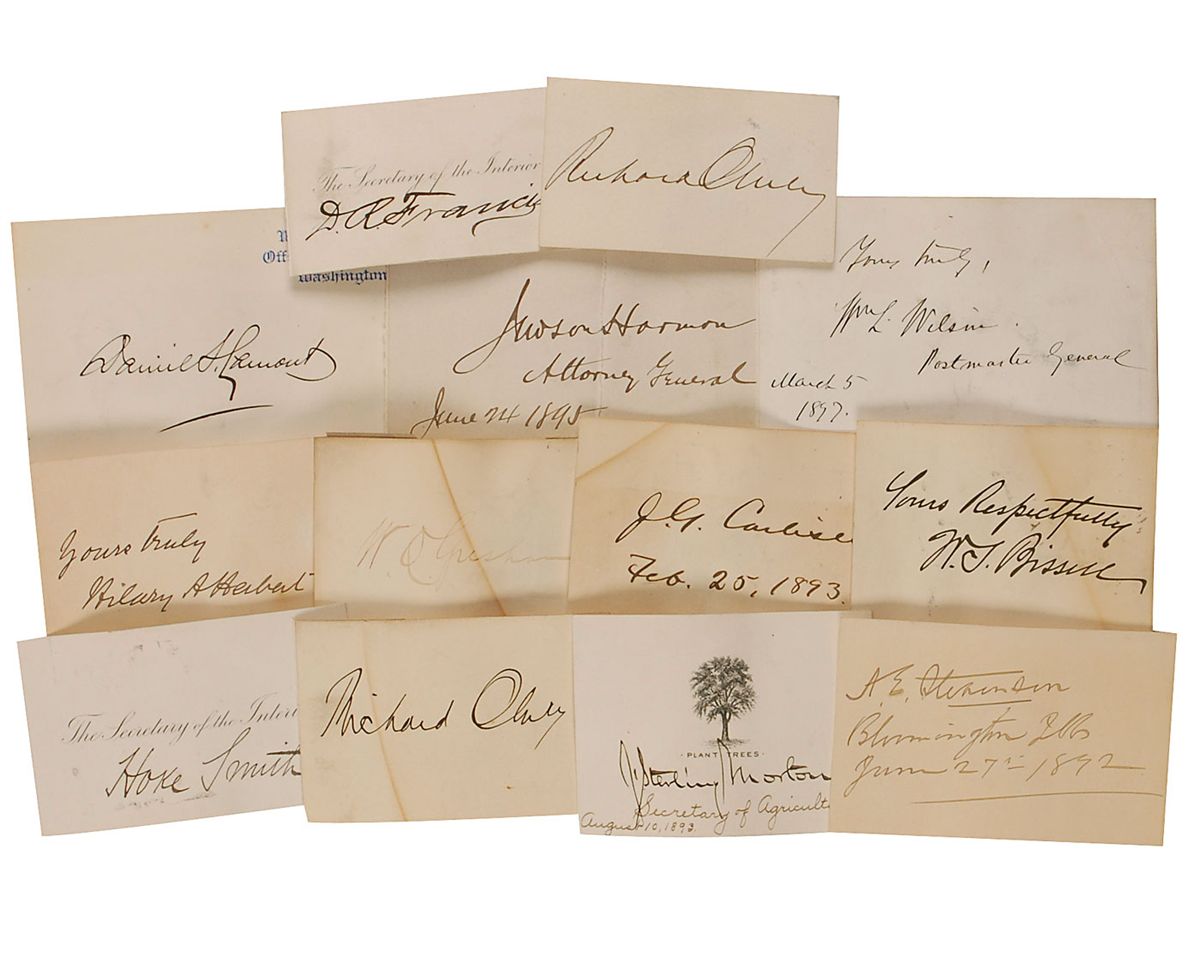 The Secretary of the Interior
D.R. Francis
Richard Olney
Washington
Daniel S. Lamont
Judson Harmon
Attorney General
June 24 1895
Yours truly,
Wm L. Wilson
Postmaster General
March 5
1897.
Yours truly
Hilary A Herbert
W Q Gresham
J.G. Carlisle
Feb. 25, 1893.
Yours Respectfully
W.S. Bissell
The Secretary of the Interi
Hoke Smith
Richard Olney
· PLANT TREES ·
J. Sterling Morton
Secretary of Agricultu
August 10, 1893.
A. E. Stevenson
Bloomington Ills
June 27th 1892